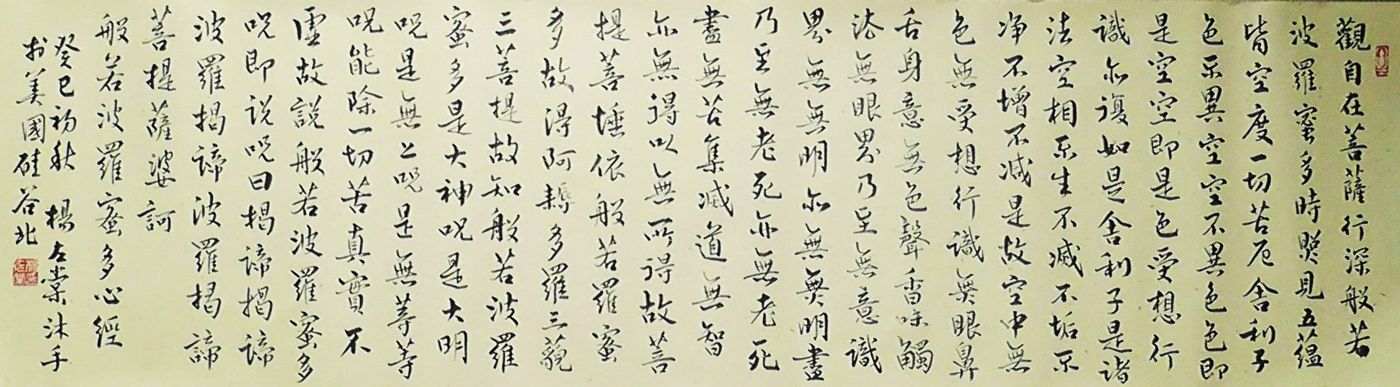 觀自在菩薩行深般若
波羅蜜多時照見五蘊
皆空度一切苦厄舍利子
色不異空空不異色色即
是空空即是色受想行
識亦復如是舍利子是諸
法空相不生不滅不垢不
净不增不減是故空中無
色無受想行識無眼鼻
舌身意無色聲香味觸
法無眼界乃至無意識
界無無明亦無無明盡
乃至無老死亦無老死
盡無苦集滅道無智
亦無得以無所得故菩
提菩埵依般若羅蜜
多故得阿耨多羅三藐
三菩提故知般若波羅
蜜多是大神呪是大明
呪是無上呪是無等等
呪能除一切苦真實不
虛故說般若波羅蜜多
呪即說呪曰揭諦揭諦
波羅揭諦波羅揭諦
菩提薩婆訶
般若波羅蜜多心經
癸巳初秋 楊左棠沐手
於美國硅谷北